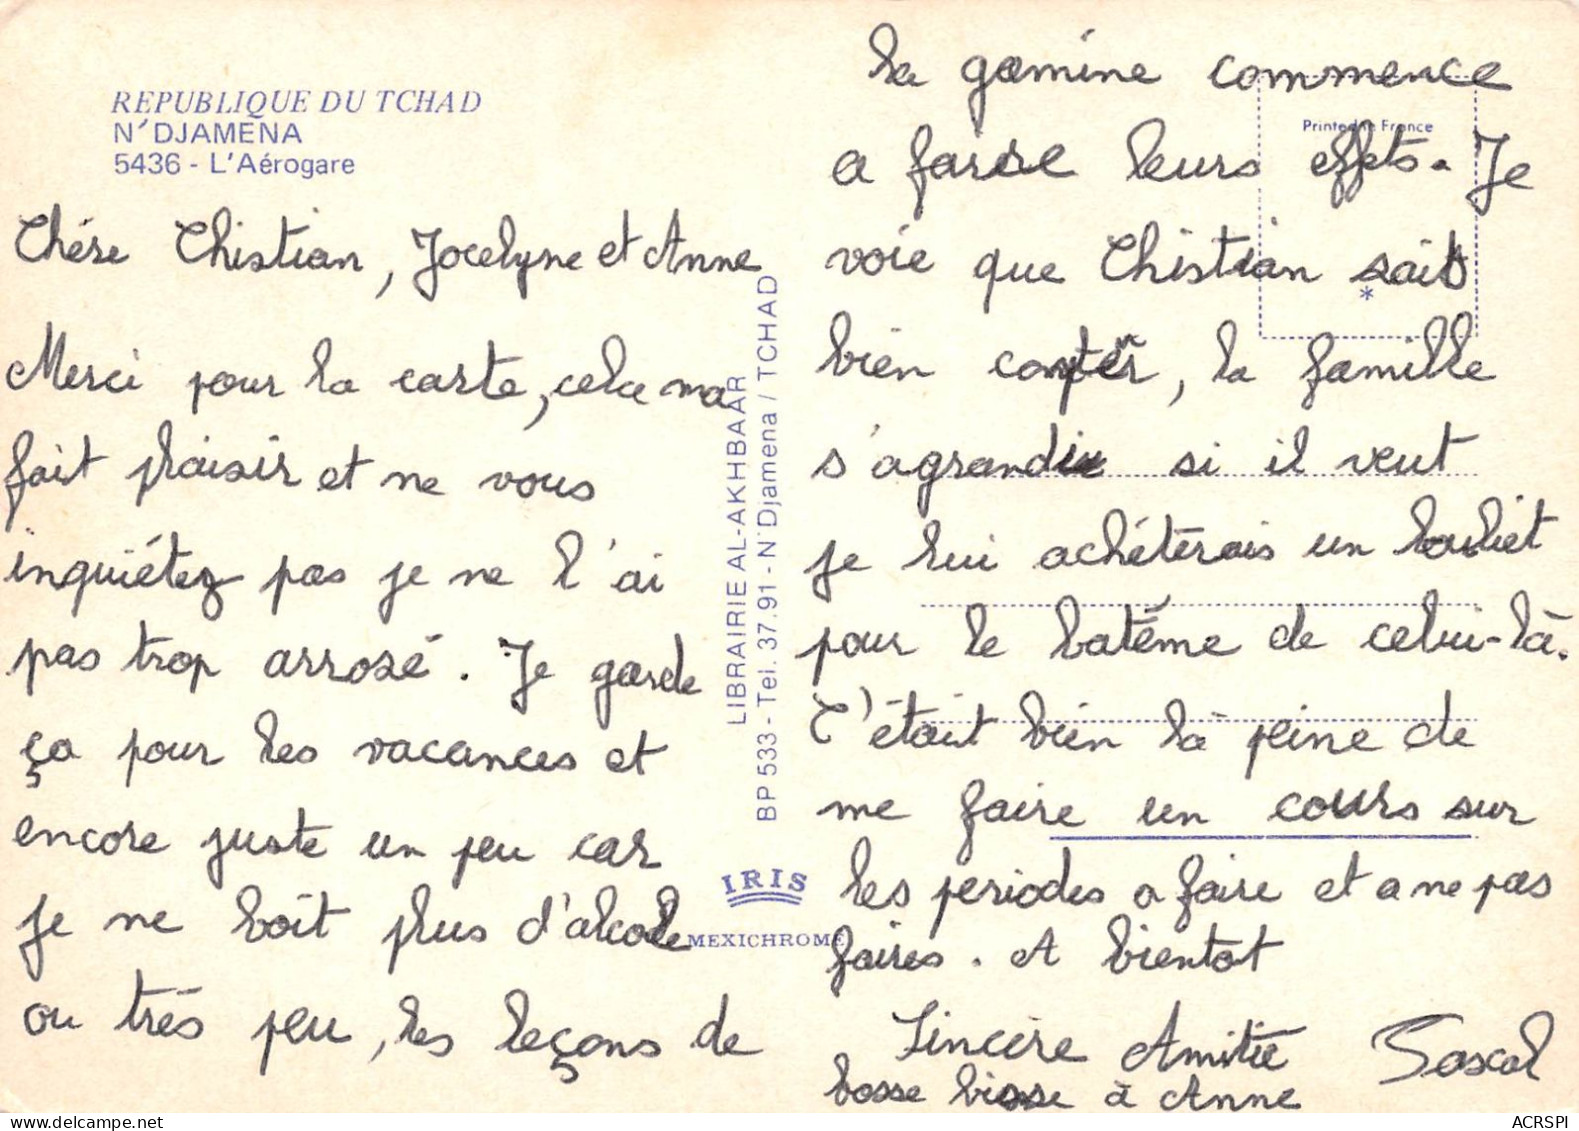 REPUBLIQUE DU TCHAD
N'DJAMENA
5436 - L'Aérogare
Chére Chistian, Jocelyne et Anne
Merci pour la carte, cela ma
fait plaisir et ne vous
inquiétez pas je ne l'ai
pas trop arrosé. Je garde
ça pour les vacances et
encore juste un peu car
je ne boit plus d'alcole
ou trés peu, les leçons de
LIBRAIRIE AL-AKHBAAR
BP 533 - Tel. 37.91 - N'Djamena / TCHAD
IRIS
MEXICHROME
Printed in France
*
la gamine commence
a faire leurs effets. Je
voie que Chistian sait
bien compter, la famille
s'agrandie si il veut
je lui achéterais un
pour le batéme de celui-là.
C'était bien la peine de
me faire un cours sur
les periodes a faire et a ne pas
faires. A bientot
Sincère Amitié Pascal
bosse bisse à Anne
ACRSPI